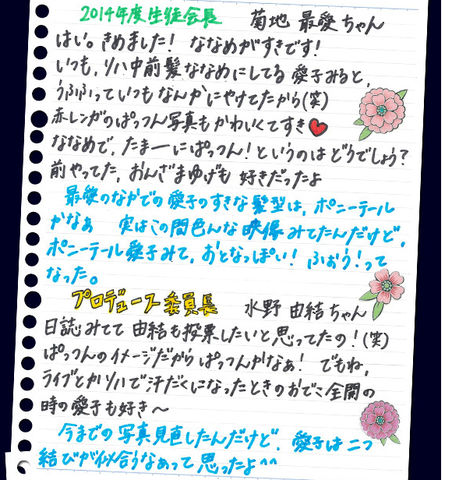 2014年度生徒会長 菊地 最愛ちゃん
はい。きめました! ななめがすきです!
いつも、リハ中前髪ななめにしてる愛子みると、
うふふっていつもなんかにやけてたから(笑)
赤レンガのぱっつん写真もかわいくてすき❤
ななめで、たまーにぱっつん!というのはどうでしょう?
前やってた、おんざまゆげも好きだったよ
最愛のなかでの愛子のすきな髪型は、ポニーテール
かなぁ 実はこの間色んな映像みてたんだけど、
ポニーテール愛子みて、おとなっぽい! ふぉう!って
なった。
プロデュース委員長 水野 由結ちゃん
日誌みてて由結も投票したいと思ってたの!(笑)
ぱっつんのイメージだからぱっつんかなぁ! でもね、
ライブとかリハで汗だくになったときのおでこ全開の
時の愛子も好き〜
今までの写真見直したんだけど、愛子は二つ
結びが似合うなぁって思ったよ^^